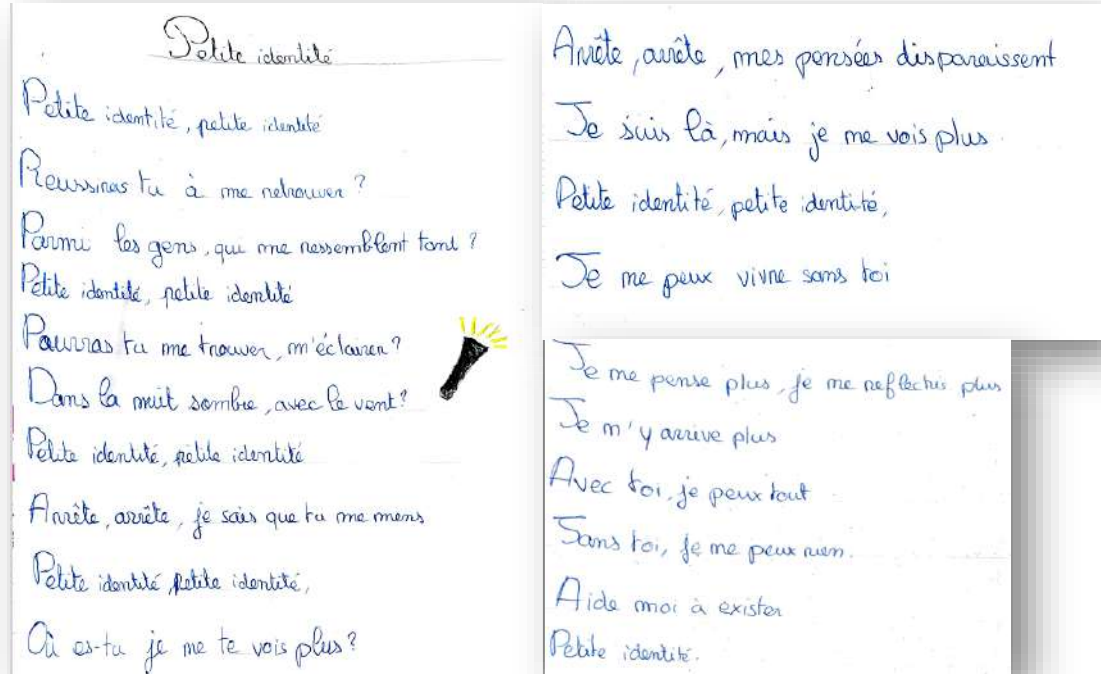 Petite identité
Petite identité, petite identité
Reussiras tu à me retrouver ?
Parmi les gens, qui me ressemblent tant ?
Petite identité, petite identité
Pourras tu me trouver, m'éclairer ?
Dans la nuit sombre, avec le vent ?
Petite identité, petite identité
Arrête, arrête, je sais que tu me mens
Petite identité petite identité,
Où es-tu je ne te vois plus ?
Arrête, arrête, mes pensées disparaissent
Je suis là, mais je me vois plus.
Petite identité, petite identité,
Je ne peux vivre sans toi
Je ne pense plus, je ne reflechis plus
Je n'y arrive plus
Avec toi, je peux tout
Sans toi, je ne peux rien.
Aide moi à exister
Petite identité.